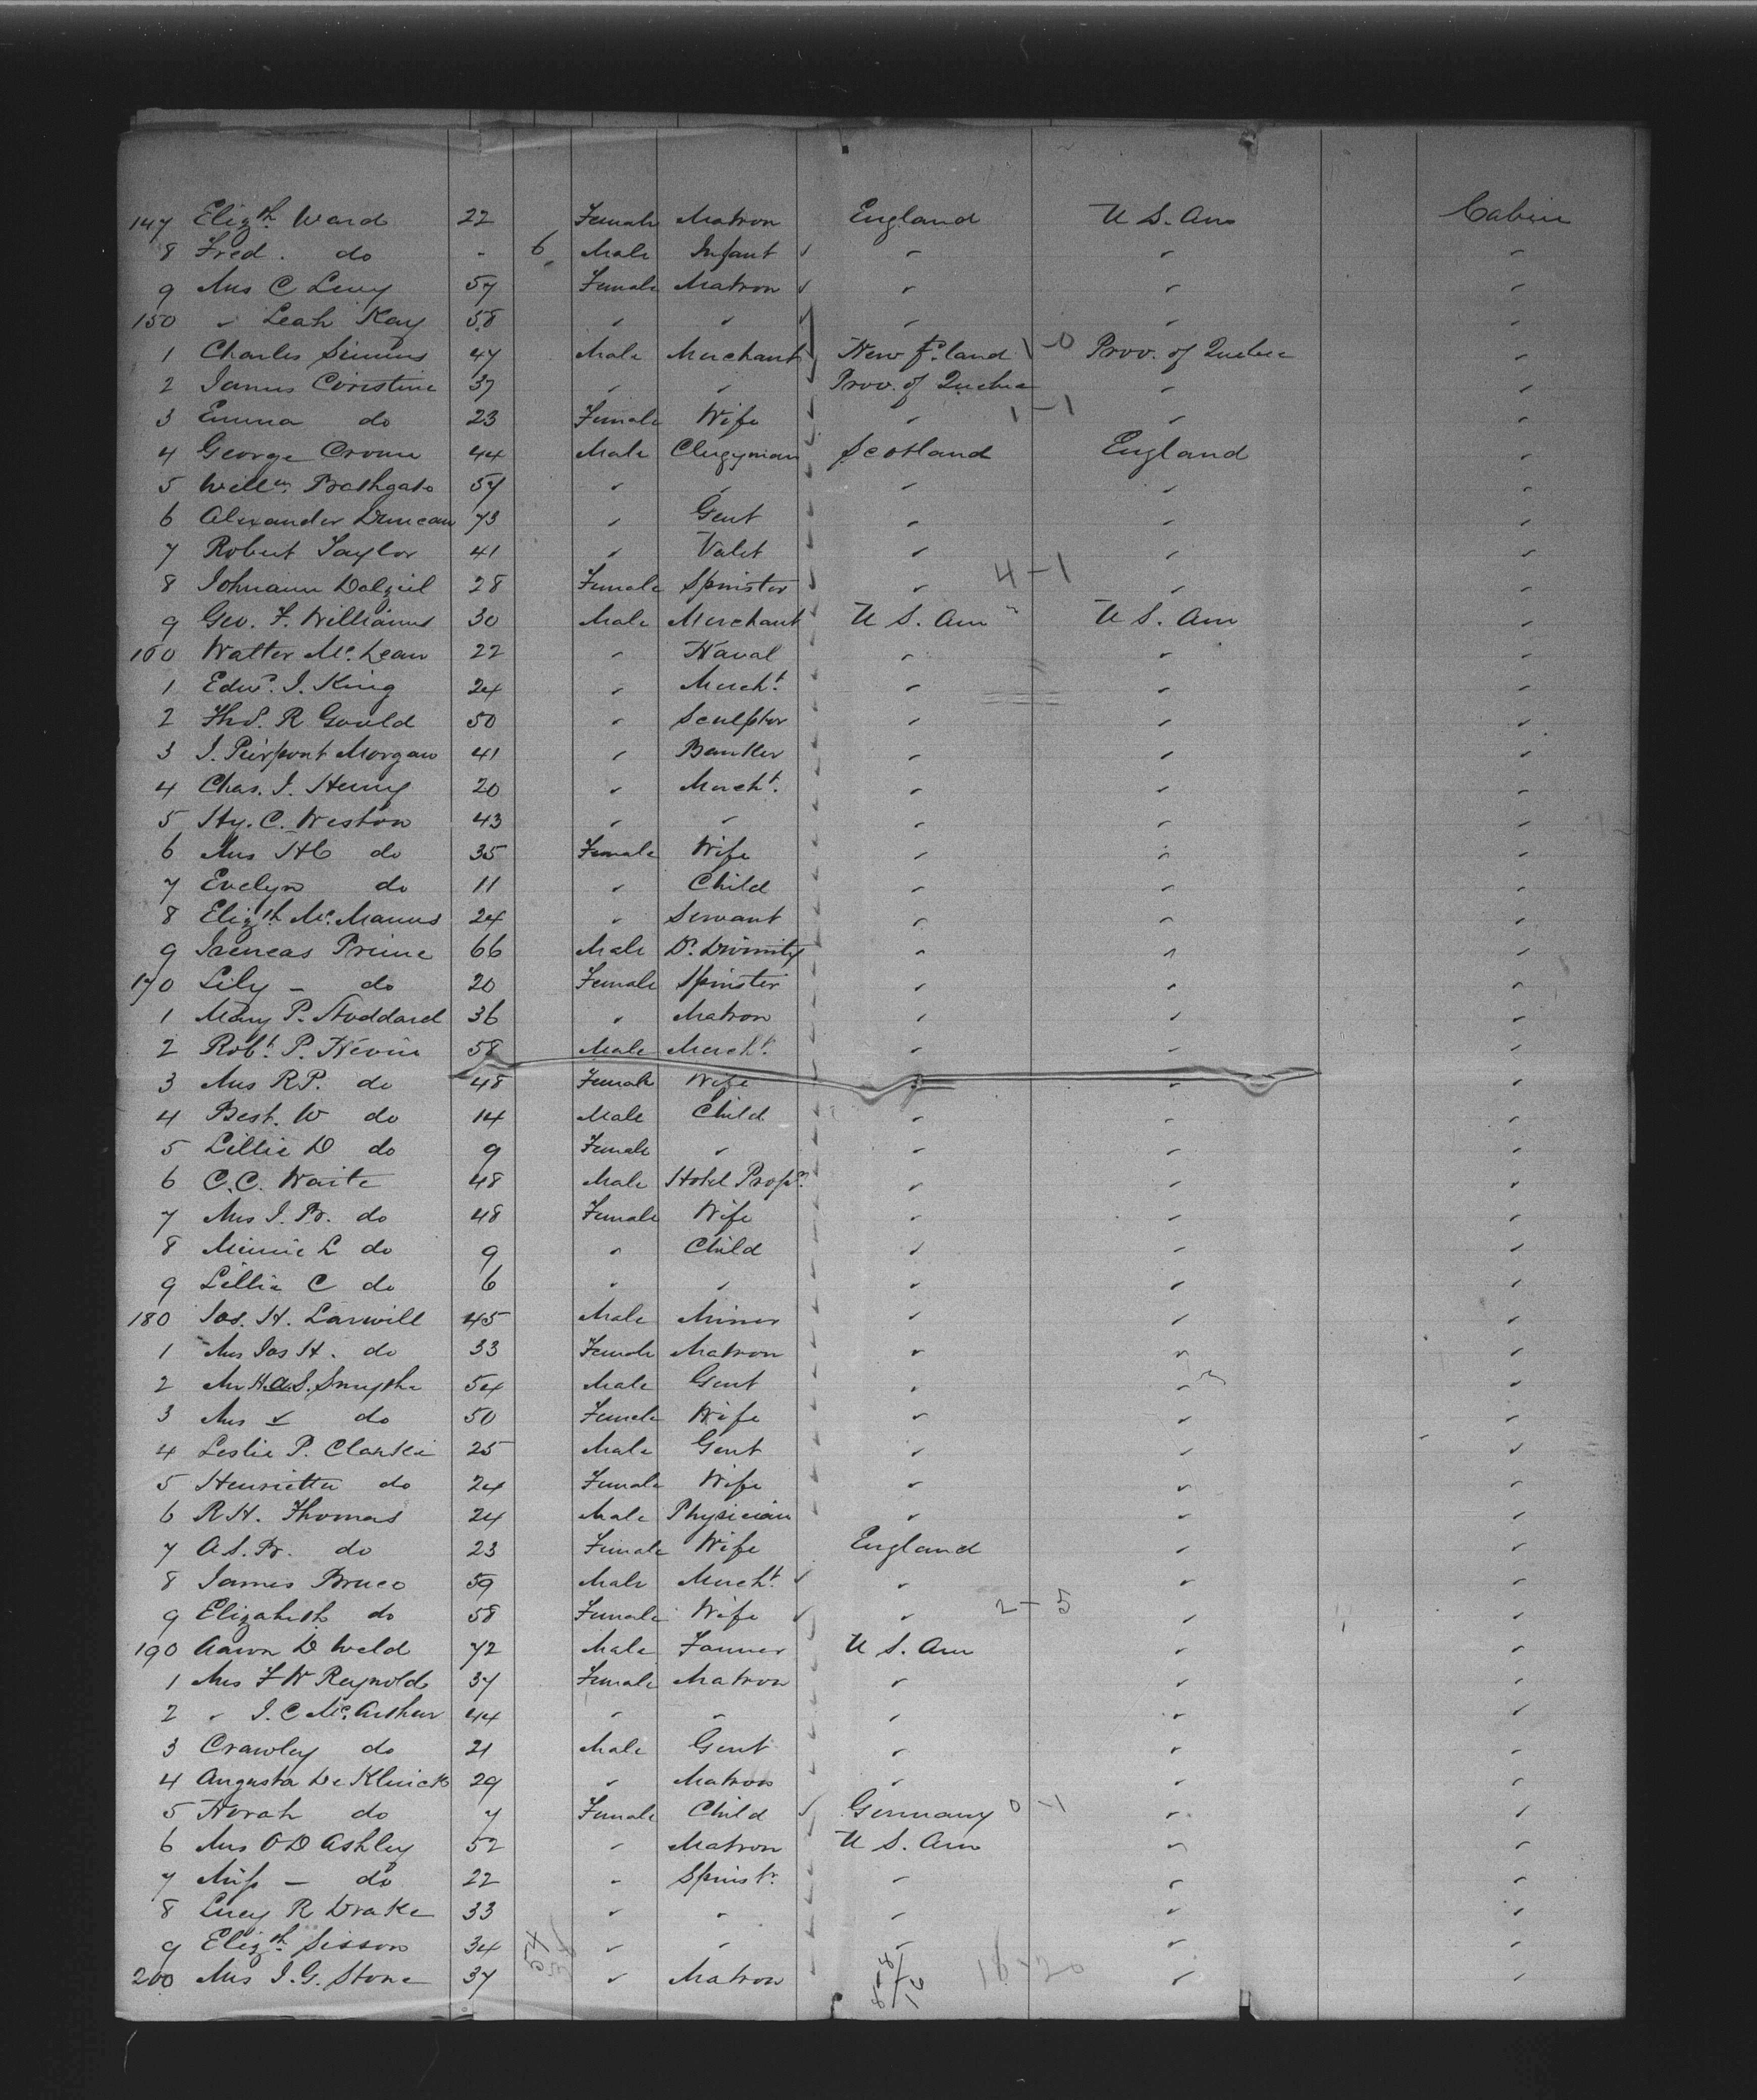 147 Elizth Ward 22 Female Matron England U S. Am Cabin
8 Fred. do - 6 Male Infant " " "
9 Mrs C Levy 57 Female Matron " " "
150 " Leah Kay 58 " " " " "
1 Charles Simms 47 Male Merchant New Fd. land 1-0 Prov. of Quebec "
2 James Coristine 37 " " Prov. of Quebec " "
3 Emma do 23 Female Wife " 1-1 " "
4 George Crome 44 Male Clergyman Scotland England "
5 Willm Bathgate 57 " " " " "
6 Alexander Duncan 73 " Gent " " "
7 Robert Taylor 41 " Valet " " "
8 Johnann Dalziel 28 Female Spinster " 4-1 " "
9 Geo. F. Williams 30 Male Merchant U S. Am U S. Am "
160 Walter Mc. Lean 22 " Naval " " "
1 Edwd. J. King 24 " Mercht. " " "
2 Ths. R Gould 50 " Sculptor " " "
3 J. Pierpont Morgan 41 " Banker " " "
4 Chas. J. Henry 20 " Mercht. " " "
5 Hy. C. Weston 43 " " " " "
6 Mrs H C do 35 Female Wife " " "
7 Evelyn do 11 " Child " " "
8 Elizth Mc. Manus 24 " Servant " " "
9 Iaeneas Prime 66 Male Dr. Divinity " " "
170 Lily - do 20 Female Spinster " " "
1 Mary P. Stoddard 36 " Matron " " "
2 Robt. P. Nevin 58 Male Mercht. " " "
3 Mrs R.P. do 48 Female Wife " " "
4 Best. W do 14 Male Child " " "
5 Lillie D do 9 Female " " " "
6 C.C. Waite 48 Male Hotel Propr. " " "
7 Mrs J. B. do 48 Female Wife " " "
8 Minnie L do 9 " Child " " "
9 Lillie C do 6 " " " " "
180 Jos. H. Larwill 45 Male Miner " " "
1 Mrs Jos H. do 33 Female Matron " " "
2 Mr H.A.S. Smythe 54 Male Gent " " "
3 Mrs " do 50 Female Wife " " "
4 Leslie P. Clarke 25 Male Gent " " "
5 Henrietta do 24 Female Wife " " "
6 R H. Thomas 24 Male Physician " " "
7 A.S.B. do 23 Female Wife England " "
8 James Bruce 59 Male Mercht. " " "
9 Elizabeth do 58 Female Wife " 2-5 " "
190 Aaron D Weld 72 Male Farmer U S. Am " "
1 Mrs F W Reynolds 37 Female Matron " " "
2 " J. C Mc. Arthur 44 " " " " "
3 Crawley do 21 Male Gent " " "
4 Augusta De Klenck 29 " Matron " " "
5 Norah do 7 Female Child Germany 0-1 " "
6 Mrs O D Ashley 52 " Matron U S. Am " "
7 Miss - do 22 " Spinstr. " " "
8 Lucy R Drake 33 " " " " "
9 Elizth. Sisson 34 " " " " "
200 Mrs J. G. Stone 37 " Matron " 16-20 " "